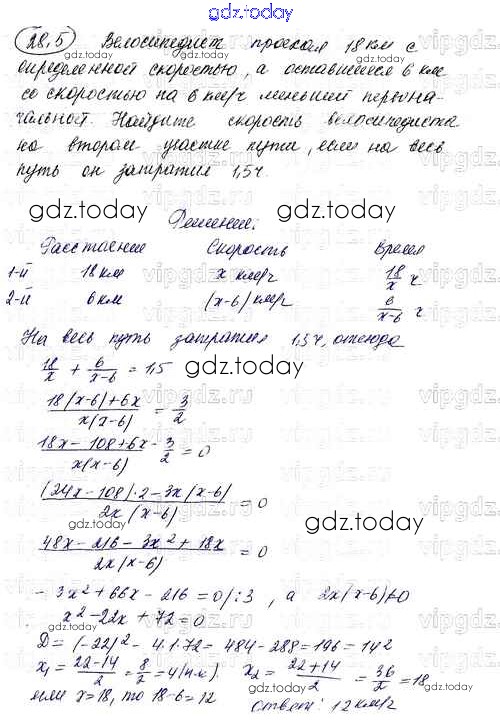 gdz.today
28.5 Велосипедист проехал 18 км с
определенной скоростью, а оставшиеся 6 км
со скоростью на 6 км/ч меньшей первона-
чальной. Найдите скорость велосипедиста
на втором участке пути, если на весь
путь он затратил 1,5 ч.
gdz.today gdz.today
Решение:
Расстояние Скорость Время
1-й 18 км x км/ч 18/x ч
2-й 6 км (x-6) км/ч 6/(x-6) ч
На весь путь затратил 1,5 ч, отсюда
18/x + 6/(x-6) = 1,5
gdz.today
(18(x-6)+6x)/(x(x-6)) = 3/2
(18x - 108 + 6x)/(x(x-6)) - 3/2 = 0
((24x - 108)·2 - 3x(x-6))/(2x(x-6)) = 0
gdz.today gdz.today
(48x - 216 - 3x² + 18x)/(2x(x-6)) = 0
- 3x² + 66x - 216 = 0 /:3, а 2x(x-6)≠0
x² - 22x + 72 = 0
D = (-22)² - 4·1·72 = 484 - 288 = 196 = 14²
x₁ = (22-14)/2 = 8/2 = 4 (п.к.) x₂ = (22+14)/2 = 36/2 = 18
или x = 18, то 18-6 = 12 ответ: 12 км/ч
gdz.today